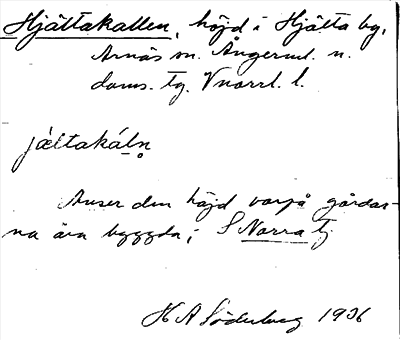 Hjättakallen, höjd i Hjätta by,
Arnäs sn. Ångerml. n.
doms. tg. Vnorrl. l.
jæltakáln̥
Avser den höjd varpå gårdar-
na äro byggda, i S Norra tg
H A Söderberg 1936